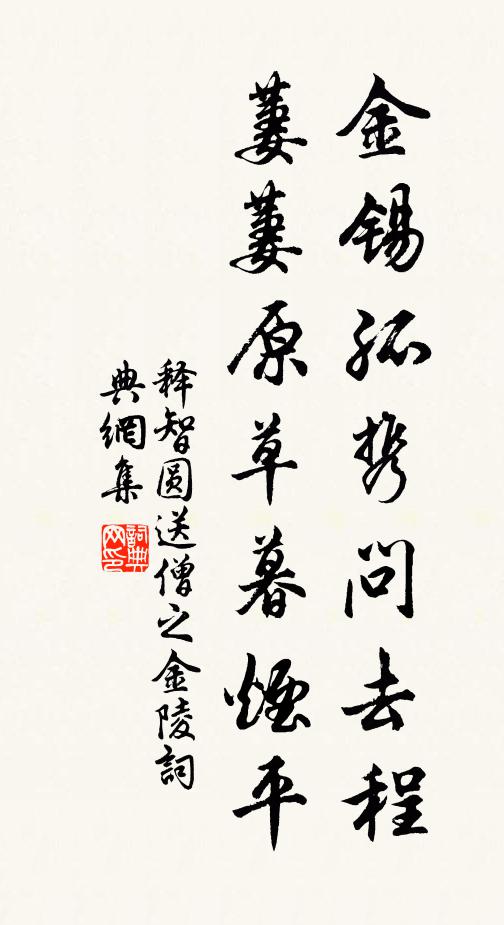 金锡孤携问去程
萋萋原草暮烟平
释智圆送僧之金陵詞
典網集
詞典网印